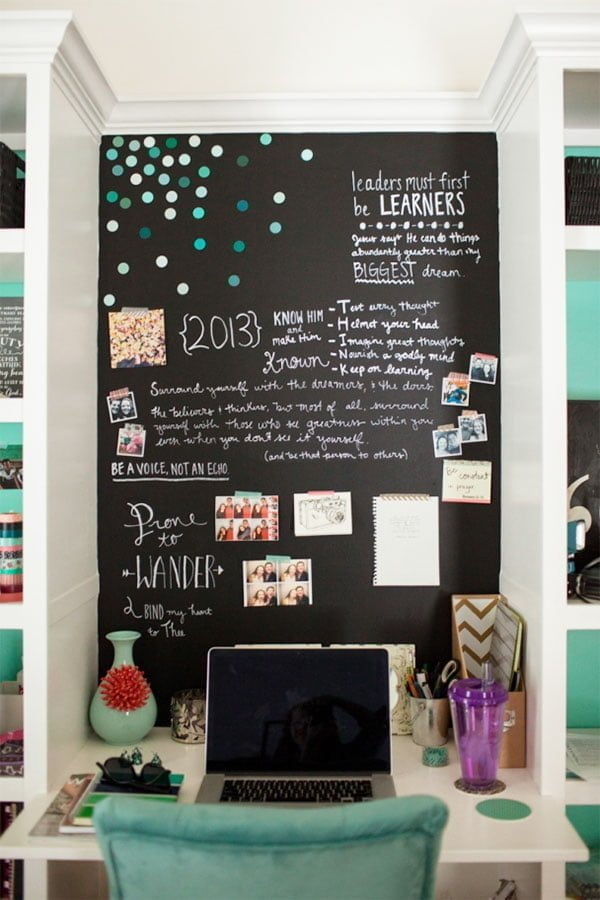 leaders must first
be LEARNERS
Jesus says He can do things
abundantly greater than my
BIGGEST dream.
{2013}
KNOW HIM
and
make Him
Known
-Test every thought
-Helmet your head
-Imagine great thoughts
-Nourish a godly mind
-Keep on learning
Surround yourself with the dreamers, & the doers,
the believers & thinkers, but most of all, surround
yourself with those who see greatness within you
even when you don't see it yourself.
(and be that person to others)
BE A VOICE, NOT AN ECHO.
Be constant
in prayer
Prone
to
WANDER
BIND my heart
to Thee